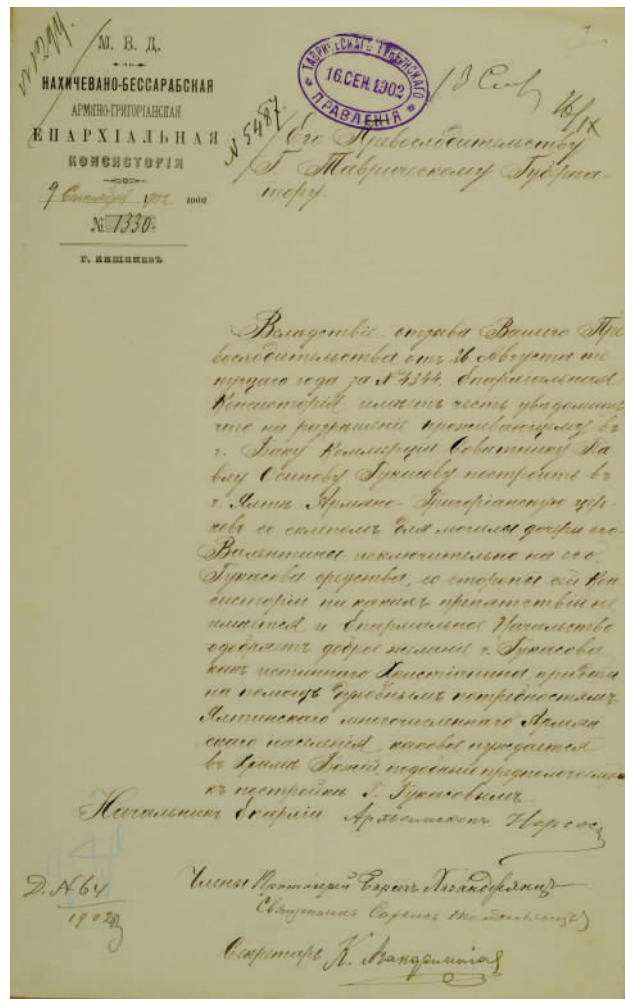 N 1294.
М. В. Д.
НАХИЧЕВАНО-БЕССАРАБСКАЯ
АРМЯНО-ГРИГОРІАНСКАЯ
ЕПАРХІАЛЬНАЯ
КОНСИСТОРІЯ
9 Сентября 1902 года
№ 1330.
Г. КИШИНЕВЪ
ТАВРИЧЕСКАГО ГУБЕРНСКАГО
16.СЕН.1902
ПРАВЛЕНІЯ
16/IX
N 5487.
Его Превосходительству
Г. Таврическому Губерна-
тору.
Вслѣдствіе отзыва Вашего Пре
восходительства отъ 26 Августа те
кущаго года за № 4344. Епархіальная
Консисторія имѣетъ честь увѣдомить,
что на разрѣшеніе проживающему въ
г. Баку Коммерціи Совѣтнику Па
влу Осипову Гукасову построить въ
г. Ялтѣ Армяно-Григоріанскую цер
ковь со склепомъ для могилы дочери его
Валентины исключительно на его,
Гукасова средства, со стороны сей Кон
систоріи ни какихъ препятствій не
имѣется и Епархіальное Начальство
одобряетъ доброе желаніе г. Гукасова
какъ истиннаго Христіанина прійти
на помощь духовнымъ потребностямъ
Ялтинскаго многочисленнаго Армян
скаго населенія, каковое нуждается
въ Храмѣ Божій, подобный предпологаемой
къ постройкѣ Г. Гукасовымъ.
Начальникъ Епархіи Архіепископъ Нерсесъ
Д. №64
1902
Члены Протоіерей
Священникъ Саркисъ
Секретарь К.